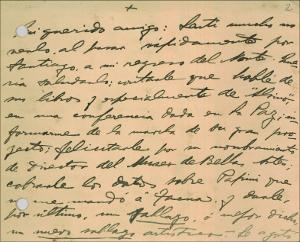 +
2
Mi querido amigo: Sentí mucho no
verlo, al pasar rápidamente por
Santiago, a mi regreso del Norte. Que-
ría saludarlo; contarle que hablé de
sus libros y especialmente de "Alsino"
en una conferencia dada en La Paz; in-
formarme de la marcha de su gran pro-
yecto; felicitarlo por su nombramiento
de director del Museo de Bellas Artes;
cobrarle los datos sobre Papini que
no me mandó á y darle,
por último, un hallazgo, ó mejor dicho
un nuevo hallazgo artístico — Le